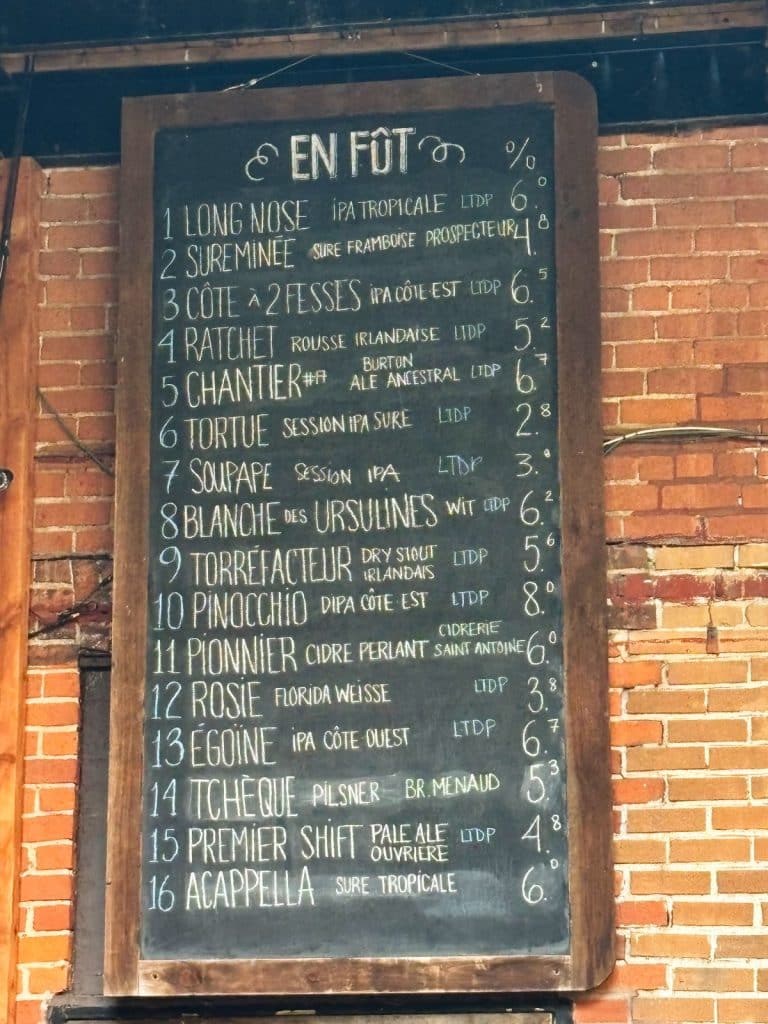 EN FÛT %
1 LONG NOSE IPA TROPICALE LTDP 6.0
2 SUREMINÉE SURE FRAMBOISE PROSPECTEUR 4.8
3 CÔTE À 2 FESSES IPA CÔTE-EST LTDP 6.5
4 RATCHET ROUSSE IRLANDAISE LTDP 5.2
5 CHANTIER #17 BURTON ALE ANCESTRAL LTDP 6.7
6 TORTUE SESSION IPA SURE LTDP 2.8
7 SOUPAPE SESSION IPA LTDP 3.
8 BLANCHE DES URSULINES WIT LTDP 6.2
9 TORRÉFACTEUR DRY STOUT IRLANDAIS LTDP 5.6
10 PINOCCHIO DIPA CÔTE EST LTDP 8.0
11 PIONNIER CIDRE PERLANT CIDRERIE SAINT ANTOINE 6.0
12 ROSIE FLORIDA WEISSE LTDP 3.8
13 ÉGOÏNE IPA CÔTE OUEST LTDP 6.7
14 TCHÈQUE PILSNER BR. MENAUD 5.3
15 PREMIER SHIFT PALE ALE OUVRIÈRE LTDP 4.8
16 ACAPPELLA SURE TROPICALE 6.0